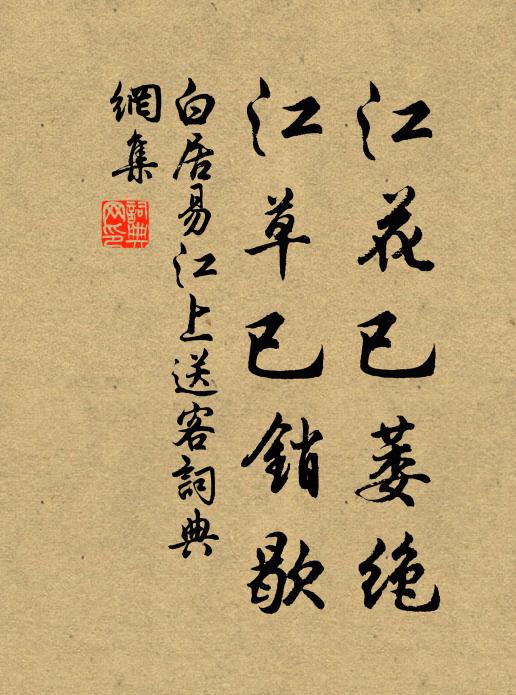 江花已萎绝
江草已銷歇
白居易江上送客詞典
網集
詞典网印